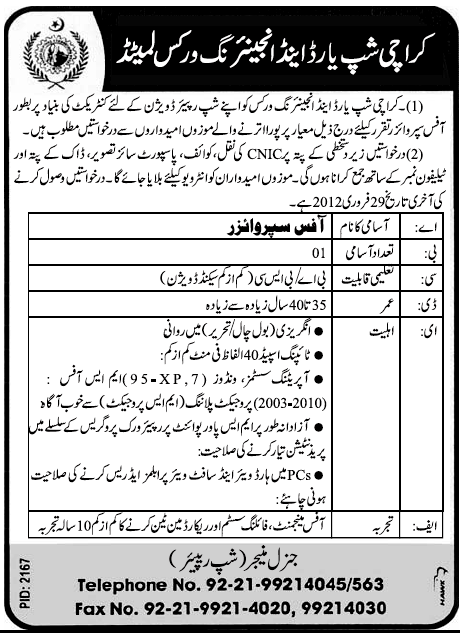 کراچی شپ یارڈ اینڈ انجینئرنگ ورکس لمیٹڈ
(1)۔ کراچی شپ یارڈ اینڈ انجینئرنگ ورکس کو اپنے شپ رپیئر ڈویژن کے لئے کنٹریکٹ کی بنیاد پر بطور
آفس سپروائزر تقرر کیلئے درج ذیل معیار پر پورا اترنے والے موزوں امیدواروں سے درخواستیں مطلوب ہیں۔
(2) درخواستیں زیر دستخطی کے پتہ پر CNIC کی نقل، کوائف، پاسپورٹ سائز تصویر، ڈاک کے پتہ اور
ٹیلیفون نمبر کے ساتھ جمع کرانا ہوں گی۔ موزوں امیدواران کو انٹرویو کیلئے بلایا جائے گا۔ درخواستیں وصول کرنے
کی آخری تاریخ 29 فروری 2012 ہے۔
اے: آسامی کا نام آفس سپروائزر
بی: تعداد آسامی 01
سی: تعلیمی قابلیت بی اے/بی ایس سی (کم از کم سیکنڈ ڈویژن)
ڈی: عمر 35 تا 40 سال زیادہ سے زیادہ
ای: اہلیت ● انگریزی (بول چال/تحریر) میں روانی
● ٹائپنگ اسپیڈ 40 الفاظ فی منٹ کم از کم:
● آپریٹنگ سسٹمز، ونڈوز (95-XP,7) ایم ایس آفس:
(2003-2010) پروجیکٹ پلاننگ (ایم ایس پروجیکٹ) سے خوب آگاہ
● آزادانہ طور پر ایم ایس پاور پوائنٹ پر رپیئر ورک پروگریس کے سلسلے میں
پریذنٹیشن تیار کرنے کی صلاحیت:
● PCs میں ہارڈ ویئر اینڈ سافٹ ویئر پرابلمز ایڈریس کرنے کی صلاحیت
ہونی چاہئے:
ایف: تجربہ آفس مینجمنٹ، فائلنگ سسٹم اور ریکارڈ مین ٹین کرنے کا کم از کم 10 سالہ تجربہ
جنرل منیجر (شپ رپیئر)
Telephone No. 92-21-99214045/563
Fax No. 92-21-9921-4020, 99214030
PID: 2167
HAWK